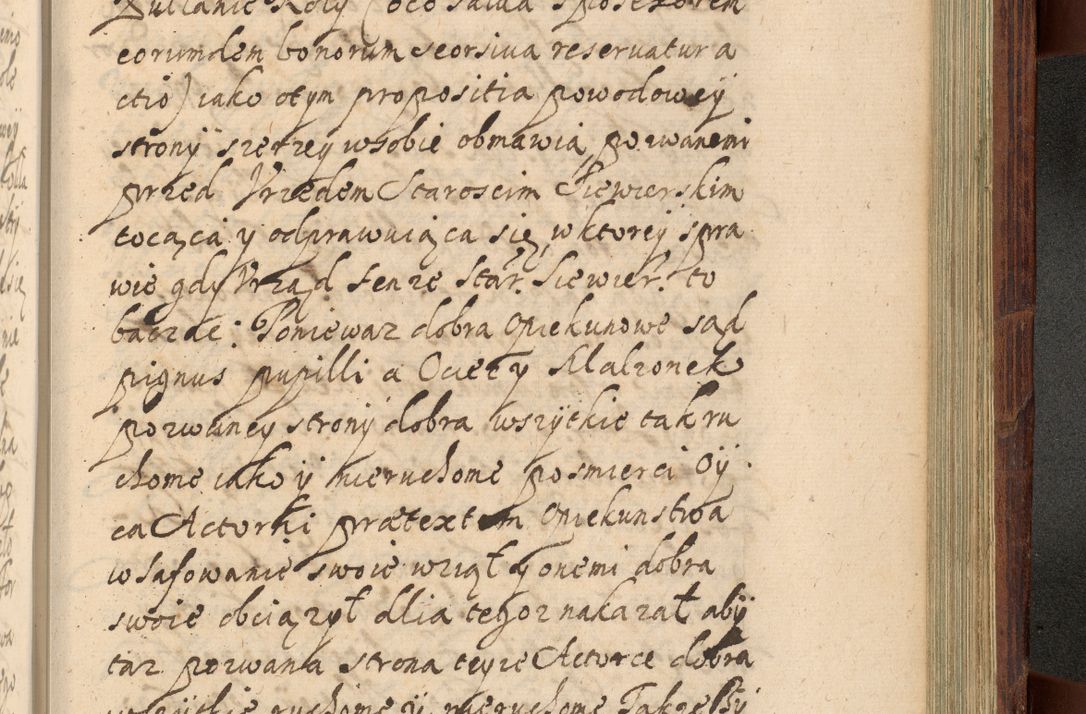 eorumdem bonorum seorsiua reseruatur a
ctio) iako otym propositia powodoweÿ
stronÿ szerzey wsobie obmawia, pozwanemi
przed Vrzędem Staroscim Siewierskim
tocąca y odprawuiąca się, wktoreÿ spra
wie gdy Vrząd tenze Star: Siewier: to
bacząc: Poniewaz dobra Opiekunowe sąd
pignus pupilli a Ociec y Malzonek
pozwaney stronÿ dobra wszÿtkie tak ru
chome iako ÿ nieruchome posmierci Oÿ
ca Actorki prætextem Opiekunstwa
wSafowanie swoie wziął y onemi dobra
swoie obciązÿł dlia tegoz nakazał abÿ
taz pozwana strona teyze Actorce dobra
wszÿtkie ruchome ÿ nieruchome Takze Bÿ